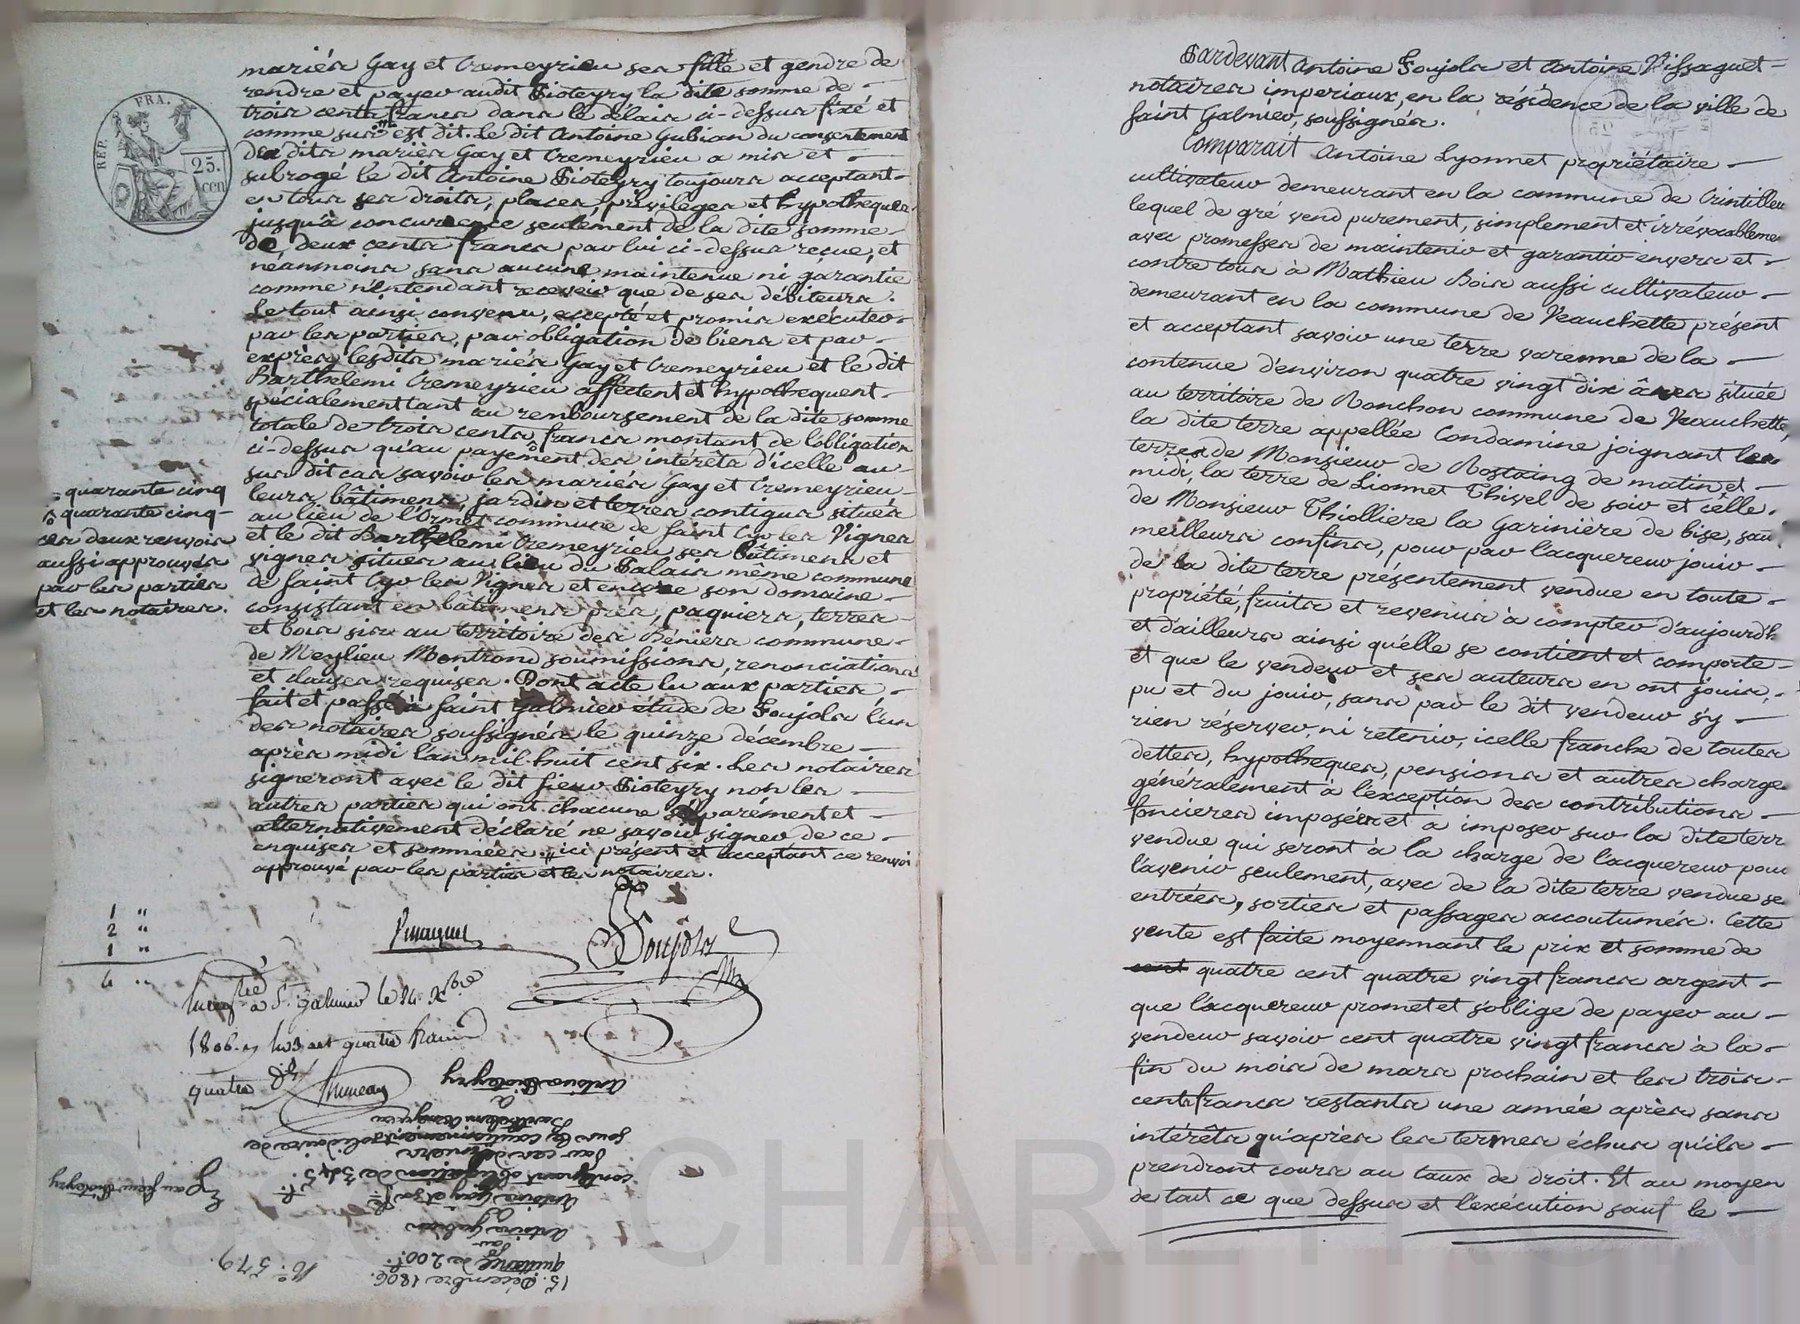 mariés Gay et Cremeyrieu ses fille et gendre de
rendre et payer audit Sioteyry la dite somme de
trois cents francs dans le délais ci-dessus fixé et
comme sus est dit. Le dit Antoine Gubian du consentement
des dits mariés Gay et Cremeyrieu a mis et
subrogé le dit Antoine Sioteyry toujours acceptant
en tous ses droits, places, privilèges et hypotheques
jusqu'à concurence seulement de la dite somme
de deux cents francs par lui ci-dessus reçue, et
néanmoins sans aucune maintenue ni garantie
comme n'entendant recevoir que de ses débiteurs.
Le tout ainsi convenu, accepté et promis exécuter
par les parties, par obligation de biens et par
exprès lesdits mariés Gay et Cremeyrieu et le dit
Barthelemi Cremeyrieu affectent et hypothequent
spécialement tant au remboursement de la dite somme
totale de trois cents francs montant de l'obligation
ci-dessus qu'au payement des intérêts d'icelle au
sus dit cas savoir les mariés Gay et Cremeyrieu
leurs bâtiments, jardin et terres contigus situés
au lieu de l'Ormet commune de Saint Cyr les Vignes
et le dit Barthelemi Cremeyrieu ses bâtiments et
vignes situés au lieu du Palais même commune
de Saint Cyr les Vignes et encore son domaine
consistant en bâtiments prés, paquiers, terres
et bois sis au territoire des Béniers commune
de Meylieu Montrond soumissions, renonciations
et clauses requises. Dont acte lu aux parties,
fait et passé à Saint Galmier étude de Foujols l'un
des notaires soussignés le quinze décembre
après midi l'an mil-huit cent six. Les notaires
signeront avec le dit sieur Sioteyry non les
autres parties qui ont chacune séparément et
alternativement déclaré ne savoir signer de ce
enquises et sommées. // ici présent et acceptant ce renvoi
approuvé par les parties et les notaires.
REP. FRA.
25. cen
quarante cinq
quarante cinq
ces deux renvois
aussi approuvés
par les parties
et les notaires.
1 "
2 "
1 "
4 "
Foujols
à St. Galmier le 24. Xbre
1806. quatre francs
quatre
Antoine Sioteyry
à
Barthelemi Cremeyrieu
sous le cautionnement solidaire de
par ces derniers
contenant obligation de 345 f.
Antoine Gay et sa fe.
Et au sieur Sioteyry
Antoine Gubian
par
quittance de 200 f.
15. Décembre 1806.
N.° 579.
Pardevant Antoine Foujols et Antoine Vissaguet
notaires imperiaux, en la résidence de la ville de
Saint Galmier, soussignés.
Comparait Antoine Lyonnet propriétaire
cultivateur demeurant en la commune de Crintilleu
lequel de gré vend purement, simplement et irrévocableme
avec promesses de maintenir et garantir envers et
contre tous à Mathieu Bois aussi cultivateur
demeurant en la commune de Veauchette présent
et acceptant savoir une terre varenne de la
contenue d'environ quatre vingt dix âres située
au territoire de Ronchon commune de Veauchette,
la dite terre appellée Condamine joignant les
terres de Monsieur de Rostaing de matin et
midi, la terre de Lionnet Thivel de soir et celle
de Monsieur Thiolliere la Garinière de bise, sauf
meilleurs confins, pour par l'acquereur jouir
de la dite terre présentement vendue en toute
propriété, fruits et revenus à compter d'aujourd'h
et d'ailleurs ainsi qu'elle se contient et comporte
et que le vendeur et ses auteurs en ont jouis,
pu et du jouir, sans par le dit vendeur s'y
rien réserver, ni retenir, icelle franche de toutes
dettes, hypotheques, pensions et autres charges
généralement à l'exception des contributions
foncieres imposées et a imposer sur la dite terr
vendue qui seront à la charge de l'acquereur pour
l'avenir seulement, avec de la dite terre vendue se
entrées, sorties et passages accoutumés. Cette
vente est faite moyennant le prix et somme de
cent quatre cent quatre vingt francs argent
que l'acquereur promet et s'oblige de payer au
vendeur savoir cent quatre vingt francs à la
fin du mois de mars prochain et les trois
cents francs restants une année après sans
intérêts qu'après les termes échus qu'ils
prendront cours au taux de droit. Et au moyen
de tout ce que dessus et l'exécution sauf le
CHAREYRON